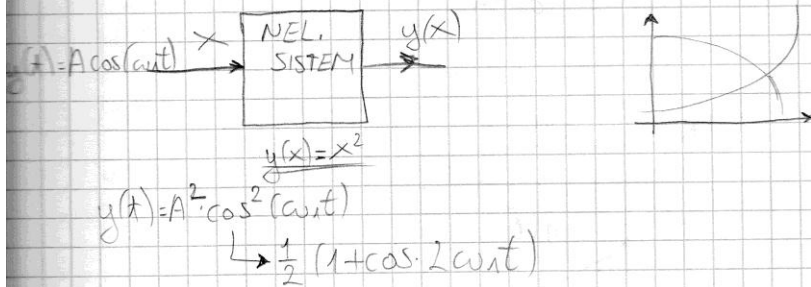 y(t)=A cos(ω₁t) X NEL. SISTEM y(x)
y(x)=x²
y(t)=A²·cos²(ω₁t)
↳ 1/2 (1+cos·2ω₁t)